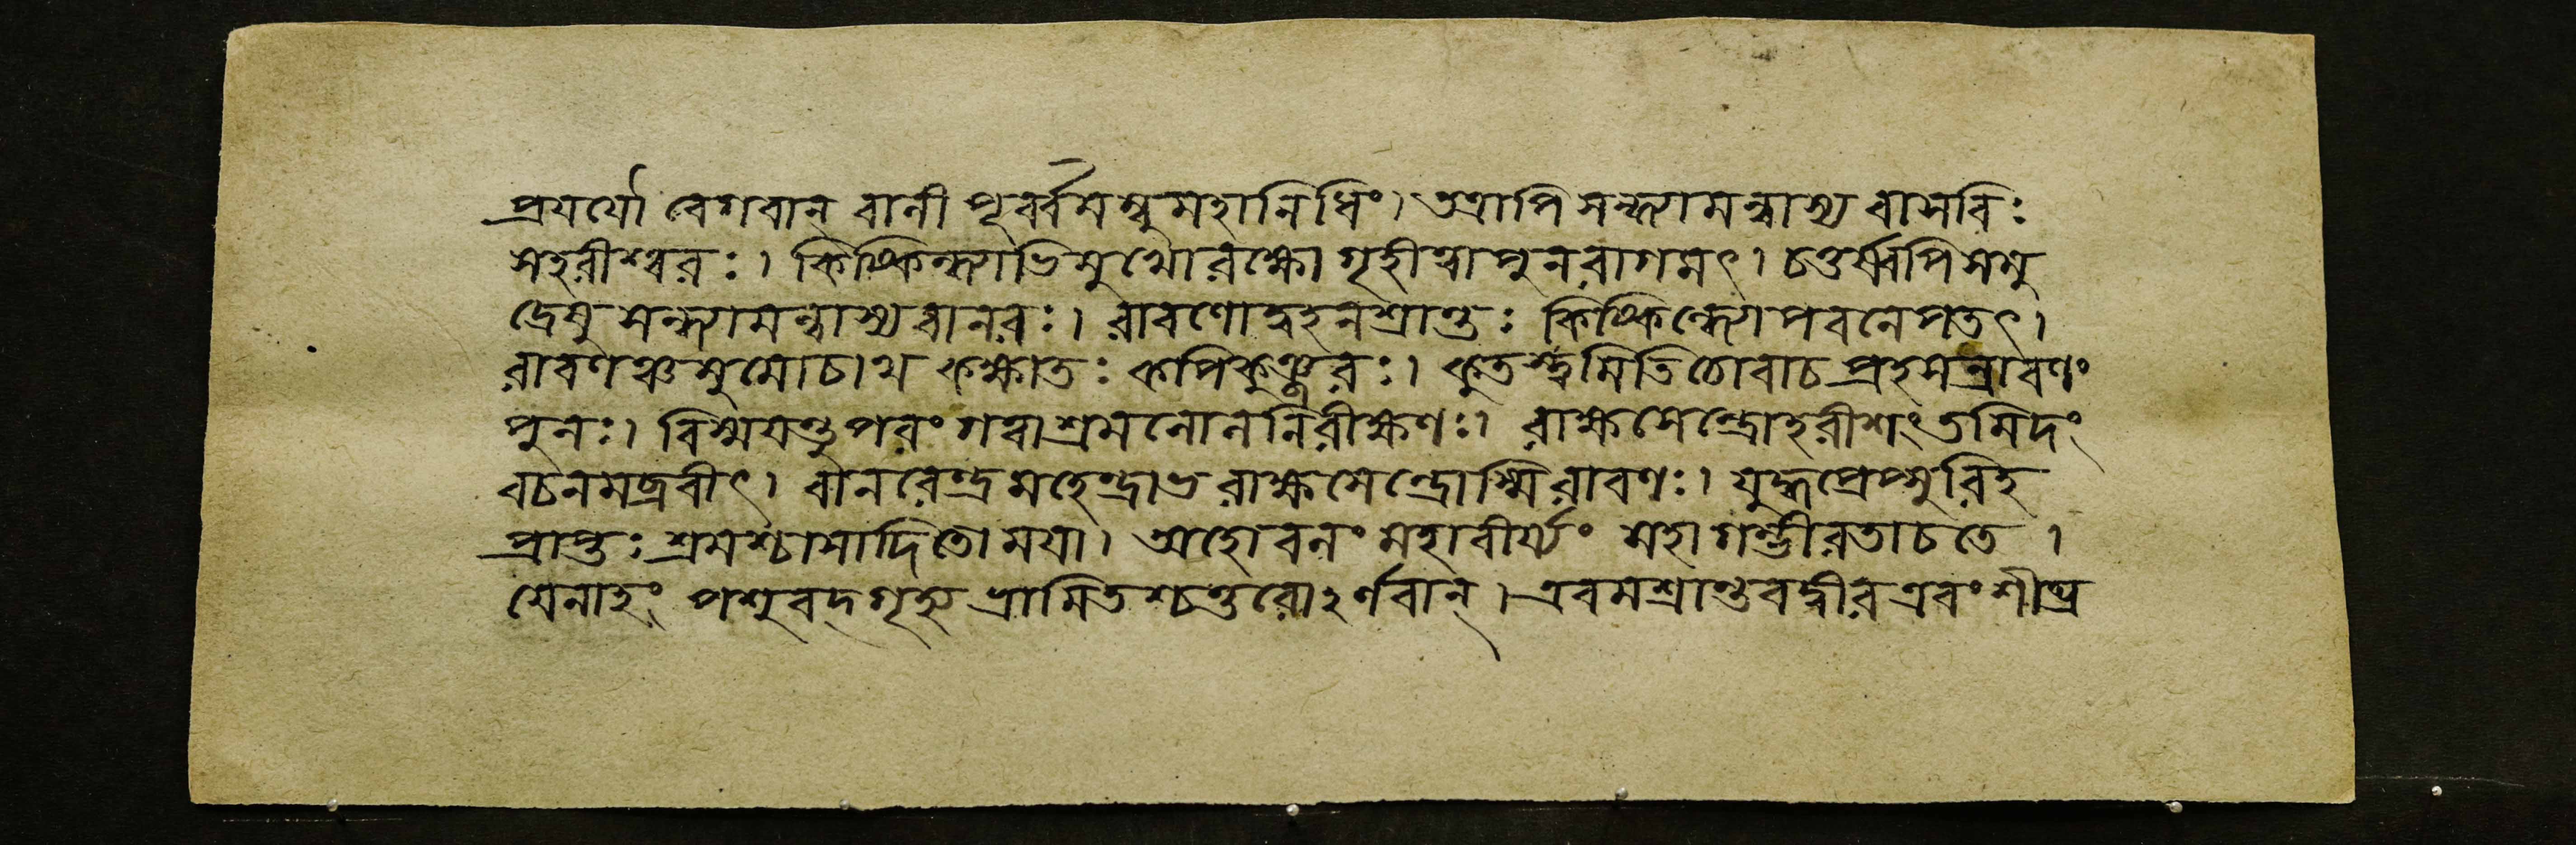 প্রযযৌ বেগবান্ বালী পূর্ব্বমম্বুমহানিধিং। তত্রাপি সন্ধ্যামন্বাস্য বাসবিঃ
সহরীশ্বরঃ। কিষ্কিন্ধ্যাভিমুখোরক্ষো গৃহীত্বাপুনরাগমৎ। চতুর্ষ্বপিসমু
দ্রেষুসন্ধ্যামন্বাস্যবানরঃ। রাবণোদ্বহনশ্রান্তঃ কিষ্কিন্ধ্যোপবনেপতৎ।
রাবণঞ্চমুমোচাথ কক্ষাতঃ কপিকুঞ্জরঃ। কুতস্ত্বমিতিচোবাচ প্রহসন্রাবণং
পুনঃ। বিস্ময়ন্তুপরংগত্বাশ্রমলোলনিরীক্ষণঃ। রাক্ষসেন্দ্রোহরীশংতমিদং
বচনমব্রবীৎ। বানরেন্দ্রমহেন্দ্রাভ রাক্ষসেন্দ্রোস্মিরাবণঃ। যুদ্ধপ্রেপ্সুরিহ
প্রাপ্তঃ শ্রমশ্চাসাদিতোময়া। অহোবলংমহাবীর্য্যং মহাগম্ভীরতাচতে ।
যেনাহং পশুবদ্গৃহ্য ভ্রামিতশ্চতুরোঽর্ণবান্। এবমশ্রান্তবদ্বীরএবংশীঘ্র